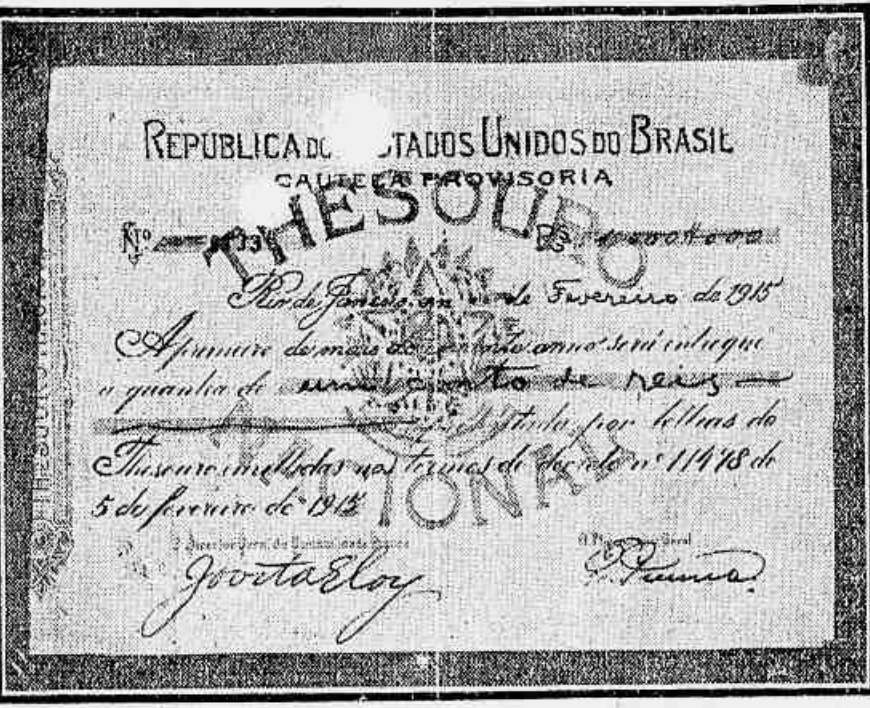 REPUBLICA DOS ESTADOS UNIDOS DO BRASIL
CAUTELA PROVISORIA
THESOURO
Nº Rs
Rio de Janeiro, em de Fevereiro de 1915
A primeiro de março do anno será entregue
a quantia de um conto de reis
por lettras do
Thesouro emittidas nos termos do decreto nº 11478 de
5 de fevereiro de 1915
NACIONAL
O Director Geral da Contabilidade
Jovita Eloy